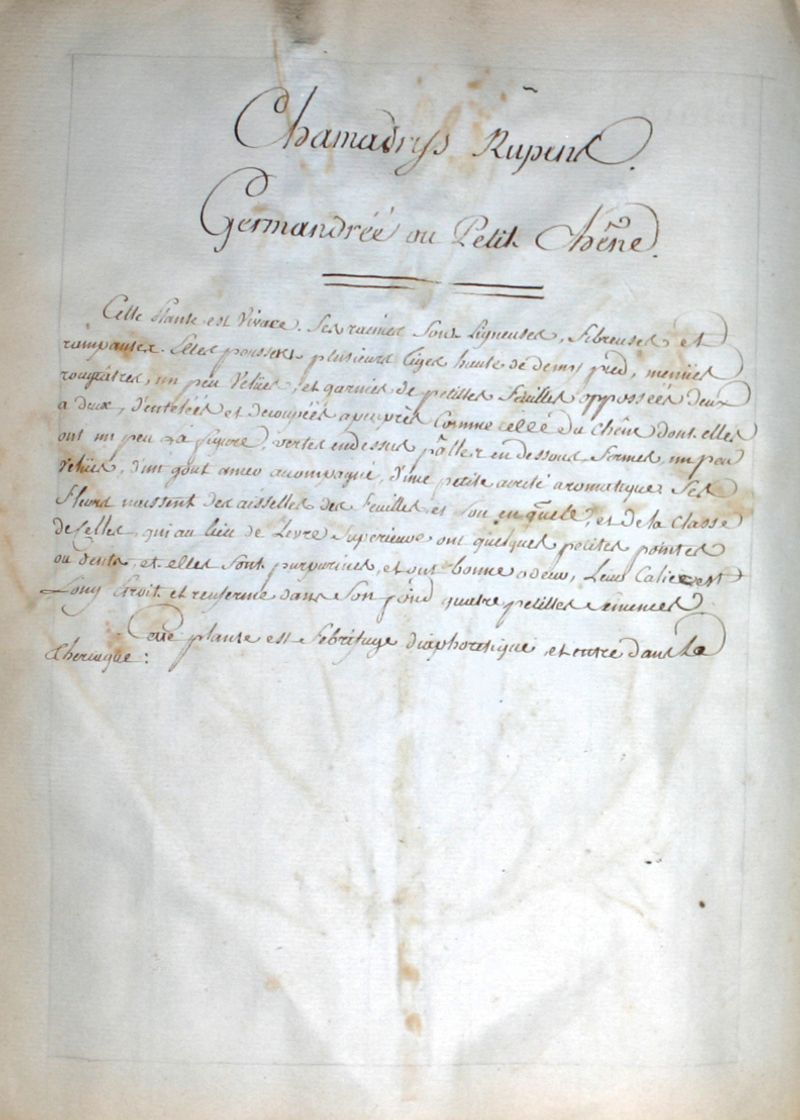 Chamadryß Rupens.
Germandréé ou Petit Chêne.
Cette Plante est Vivace. Ses racines sont Ligneuses, fibreuses et
rampantes. Elles poussent plusieurs tiges haute de demy pied, menües
rougeâtres, un peu Velües, et garnies de petittes feuilles opposseés deux
a deux, d'enteleés et decoupeés apeuprés comme celle du Chêne dont elles
ont un peu La figure, vertes en dessus pâlles en dessous fermes, un peu
Velües, d'un gout amer acompagné, d'une petite acreté aromatique. Ses
fleurs naissent des aisselles des feuilles et sou en quele, et de la Classe
de Celles, qui au lieu de Levre Superieure ont quelques petites pointes
ou dents, et elles sont purpurines, et ont bonne odeur, Leur Calice est
Long Etroit et renferme dans son fond quatre petittes semences.
Cette plante est febrifuge diaphoretique et entre dans La
Theriaque :